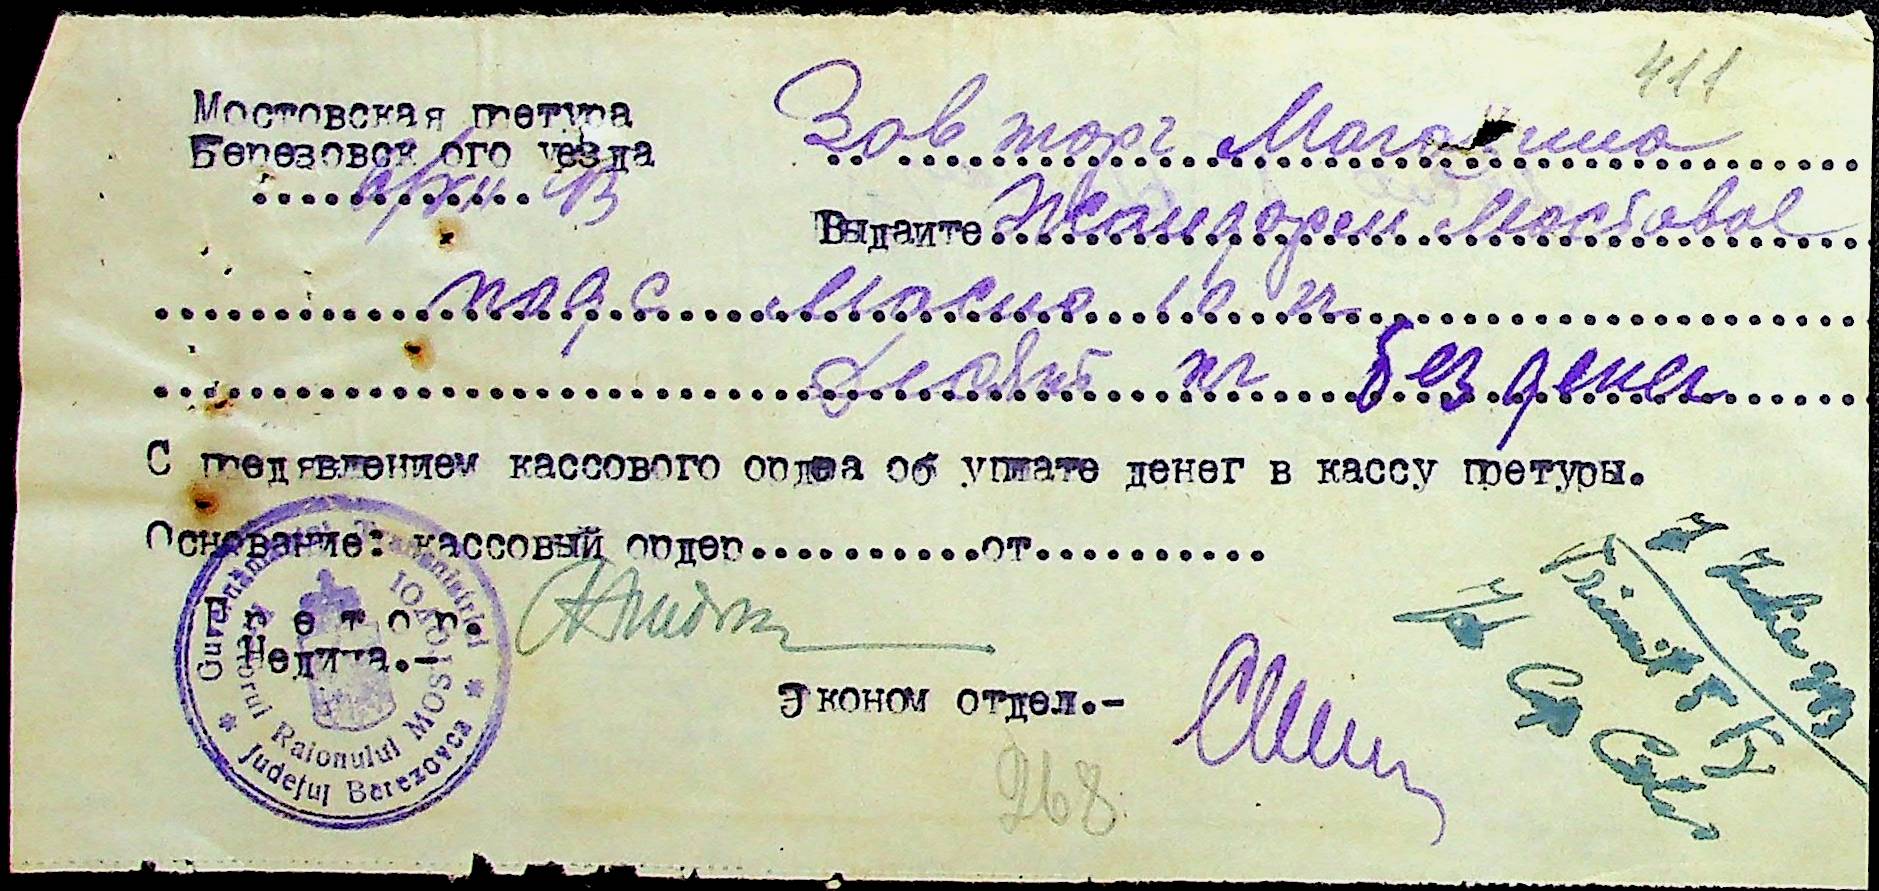 411
Мостовская претура
Березовск ого уезда
Зав торг Магазина
Выдайте Жандарм Мостовое
масло 10 кг
десять кг без денег
С предявлением кассового ордера об уплате денег в кассу претуры.
Основание: кассовый ордер..........от..........
П р е т о р.
Недича.-
Guvernământul Transnistriei
Pretorul Raionului MOSTOVOI
Județul Berezovca
Эконом отдел.-
268